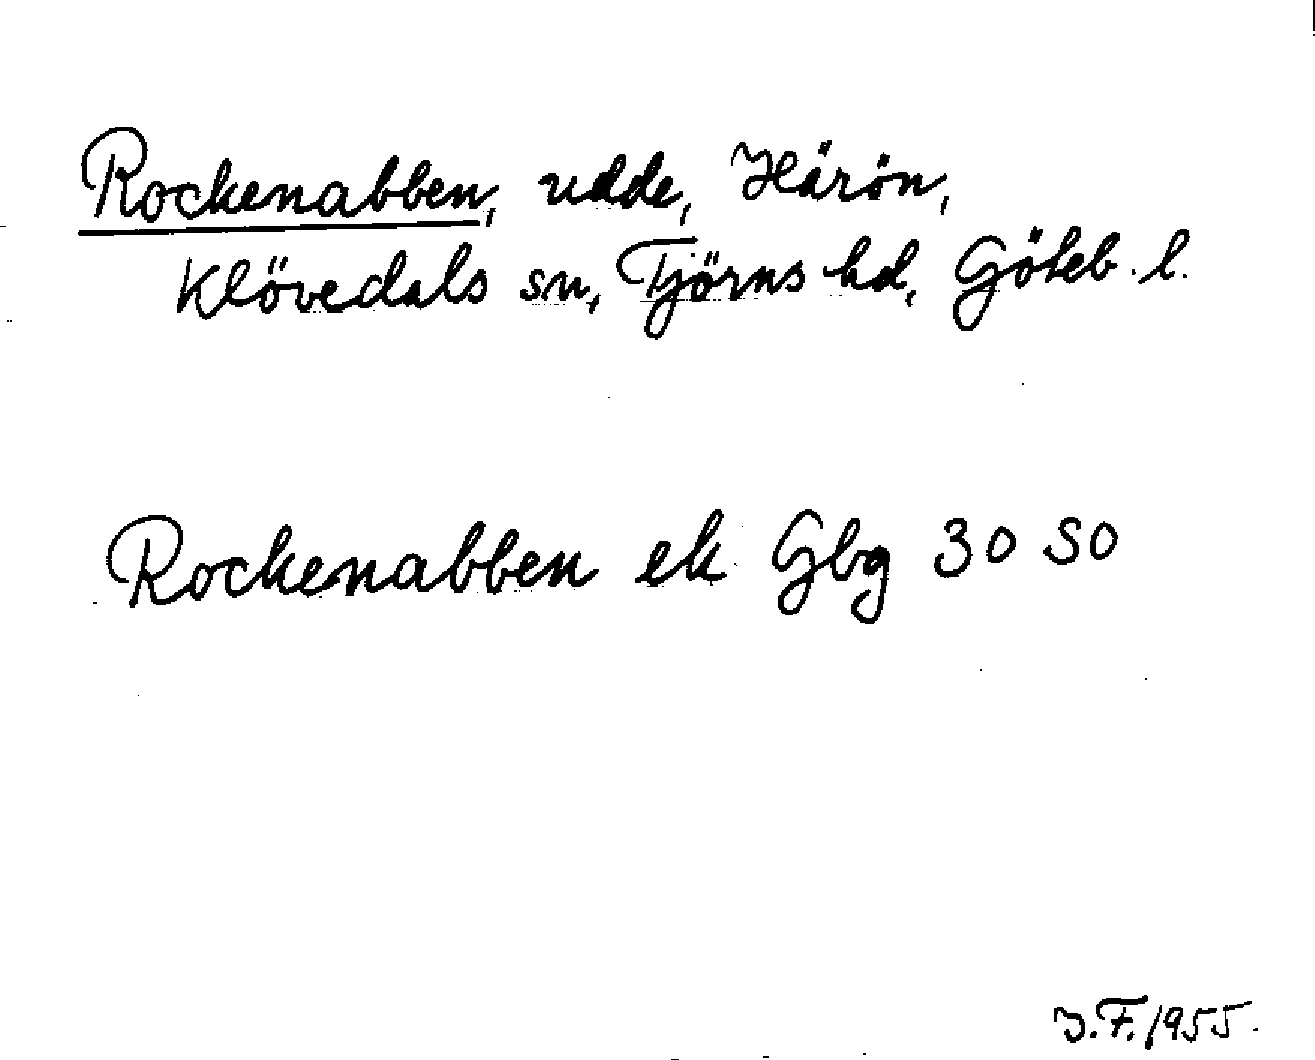 Rockenabben, udde, Härön,
Klövedals sn, Tjörns hd, Göteb. l.
Rockenabben ek Gbg 30 SO
J.F. 1955.